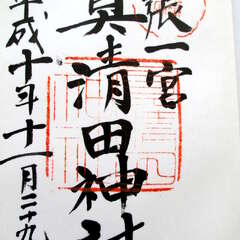 張一宮
真清田神社
平成十年十一月二十九